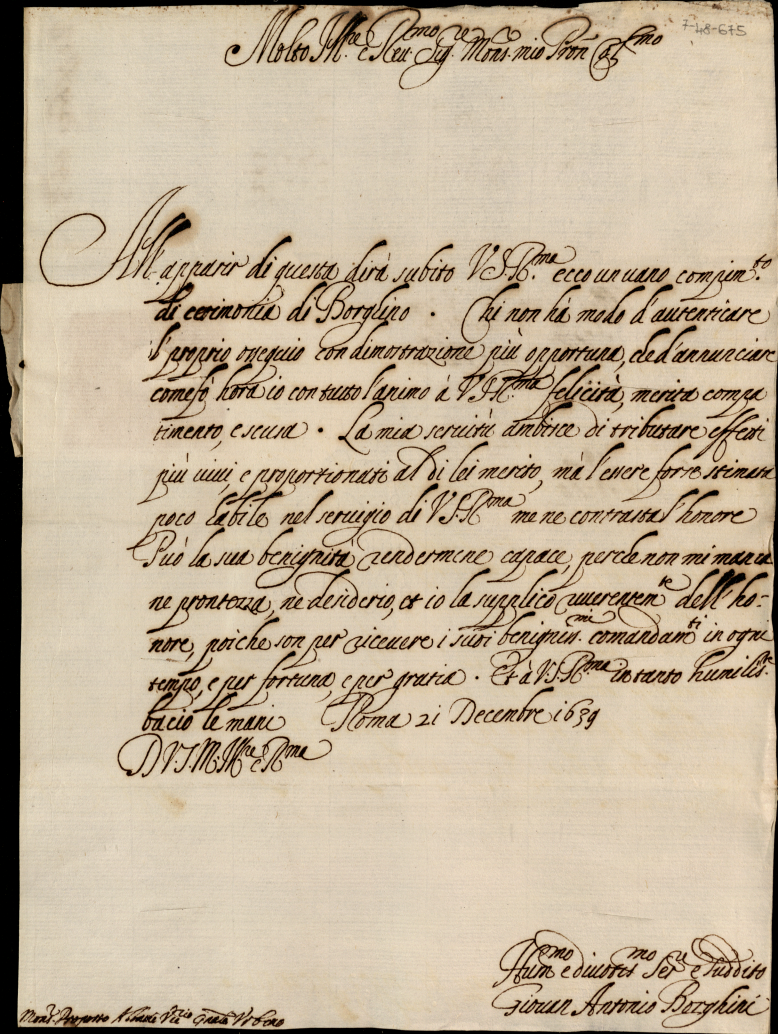 7-48-675
Molto Ill.re e Reu.mo Sig.re Mons.re mio Pron Col.mo
All'apparir di questa dirà subito V.S.R.ma ecco un uano compim.to
di cerimonia di Borghino. Chi non hà modo d'autenticare
l'proprio ossequio con dimostrazione più opportuna, che d'annunciare
come fò hora io con tutto l'animo à V.S.R.ma felicità, merita compa
timento, e scusa. La mia seruitù ambisce di tributare effetti
più uiui, e proportionati al di lei merito, mà l'essere forse stimata
poco habile nel seruigio di V.S.R.ma me ne contrasta l'honore
Può la sua benignità rendermene capace, perche non mi manca
ne prontezza, ne desiderio, et io la supplico riuerentem.te dell'ho-
nore, poiche son per riceuere i suoi benigniss.mi comandam.ti in ogni
tempo, e per fortuna, e per gratia. Et à V.S.R.ma intanto humilis.te
bacio le mani Roma 21 Decembre 1639
D V.S. M. Ill.re e R.ma
Hum.mo e diuotis.mo Ser.re e Suddito
Giouan Antonio Borghini
Mons.r Proposto Vrbano